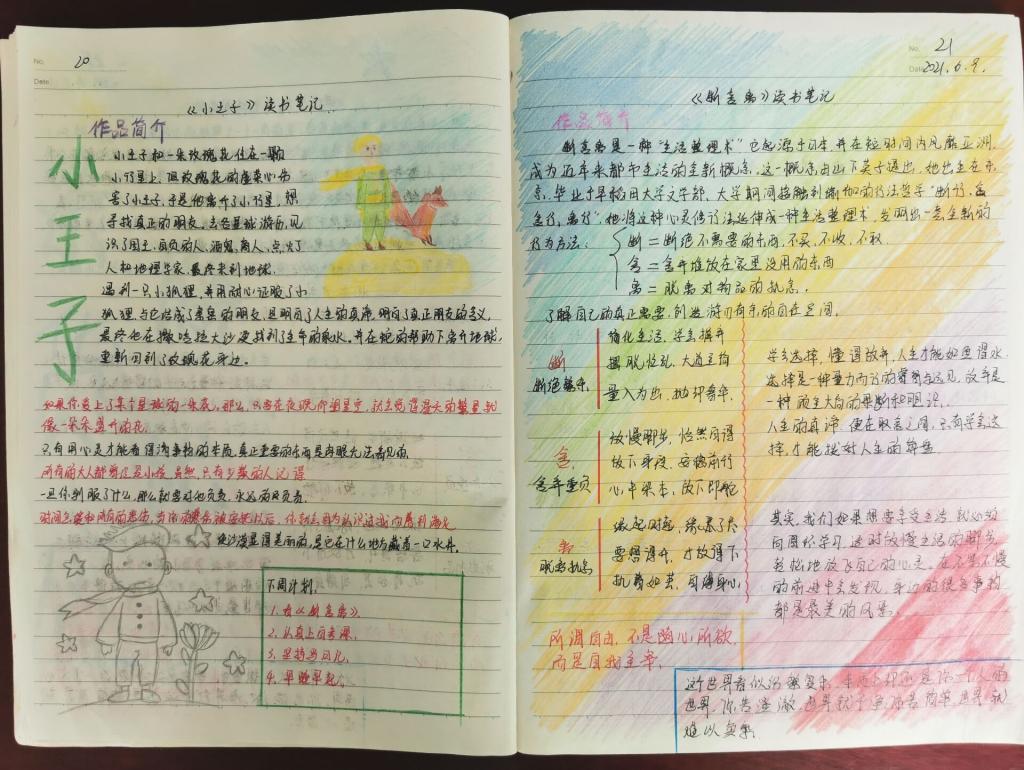 No. 20
Date
《小王子》读书笔记
作品简介
小王子
小王子和一朵玫瑰花住在一颗
小行星上,但玫瑰花的虚荣心伤
害了小王子,于是他离开了小行星,想
寻找真正的朋友,去各星球游历,见
识了国王,自负的人,酒鬼,商人,点灯
人和地理学家,最终来到地球.
遇到一只小狐狸,并用耐心征服了小
狐狸,与它结成了亲密的朋友,且明白了人生的真谛,明白了真正朋友的含义,
最终他在撒哈拉大沙漠找到了生命的泉水,并在蛇的帮助下离开地球,
重新回到了玫瑰花身边.
如果你爱上了某个星球的一朵花,那么,只要在夜晚仰望星空,就会觉得漫天的繁星就
像一朵朵盛开的花.
只有用心灵才能看得清事物的本质,真正重要的东西是肉眼无法看见的.
所有的大人都曾经是小孩,虽然,只有少数的人记得
一旦你驯服了什么,那么就要对他负责,永远的负责.
时间会缓和所有的悲伤,当你的悲伤被安抚以后,你就会因为认识过我而感到满足
使沙漠显得美丽的,是它在什么地方藏着一口水井.
下周计划:
1. 看《断舍离》.
2. 认真上网课.
3. 坚持写日记.
4. 早睡早起.
No. 21
Date 2021.6.9.
《断舍离》读书笔记
作品简介
断舍离是一种"生活整理术"它起源于日本,并在短时间内风靡亚洲.
成为近年来都市生活的全新概念.这一概念由山下英子提出,她出生在东
京,毕业于早稻田大学文学部,大学期间接触到瑜伽的行法哲学"断行,舍
行,离行",她将这种心灵修行法延伸成一种生活整理术,发网出一套全新的
行为方法:
断=断绝不需要的东西,不买.不收.不取.
舍=舍弃堆放在家里没用的东西
离=脱离对物品的执念.
了解自己的真正需要,创造游刃有余的自在空间.
断
断绝繁杂.
简化生活,学会摒弃
摆脱忙乱,大道至简
量入为出,抛却奢华.
学会选择,懂得放弃,人生才能如鱼得水.
选择是一种量力而行的睿智与远见,放弃是
一种顾全大局的果断和胆识.
人生的真谛,便在取舍之间,只有学会选
择,才能拨对人生的算盘
舍.
舍弃重负
放慢脚步,怡然自得
放下身段,安稳前行
心中杂念,放下即轻
离
脱离执念
缘起则聚,缘尽了去
要想得开,才放得下
执着如茧,自缚身心.
其实,我们如果想要享受生活,就必须
向周围学习,适时放慢生活的脚步.
轻松地放飞自己的心灵.在不紧不慢
的前进中会发现,身边的很多事物
都是最美的风景.
所谓自由,不是随心所欲
而是自我主宰.
世界,你若澄澈,世界就干净,你若简单,世界就
难以复杂.